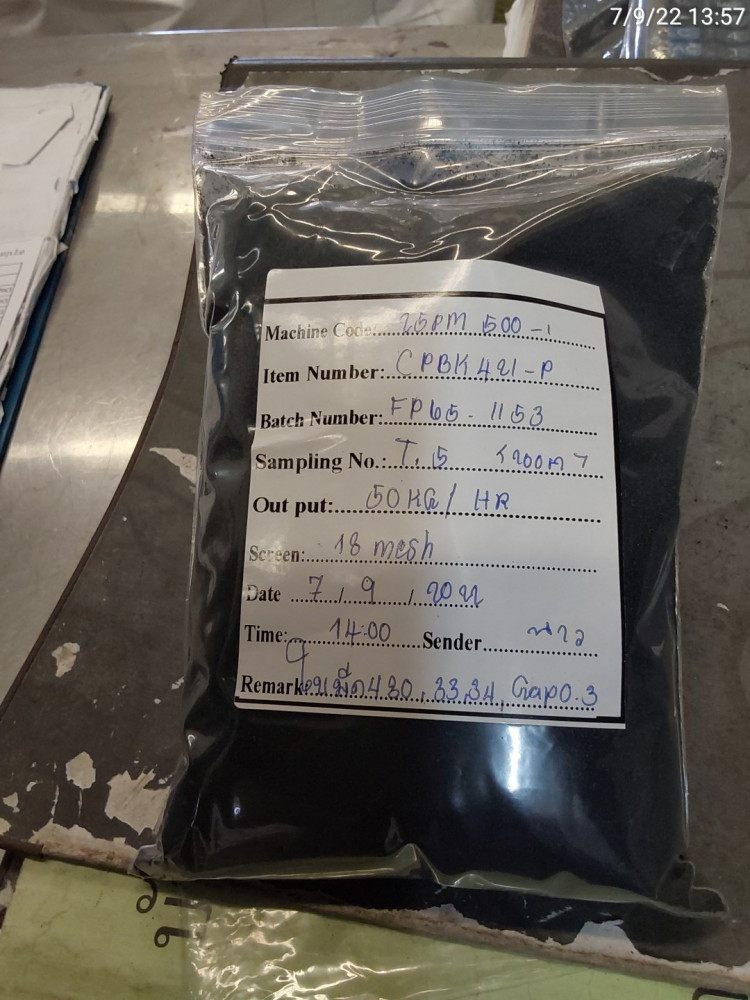 7/9/22 13:57
Machine Code: 25PM 500-1
Item Number: CPBK421-P
Batch Number: FP65-1153
Sampling No.: T.5
Out put: 50 KG/HR
Screen: 18 mesh
Date 7/9/2022
Time: 14:00 Sender
Remark: ใบมีด430,33,34, Gap0.3